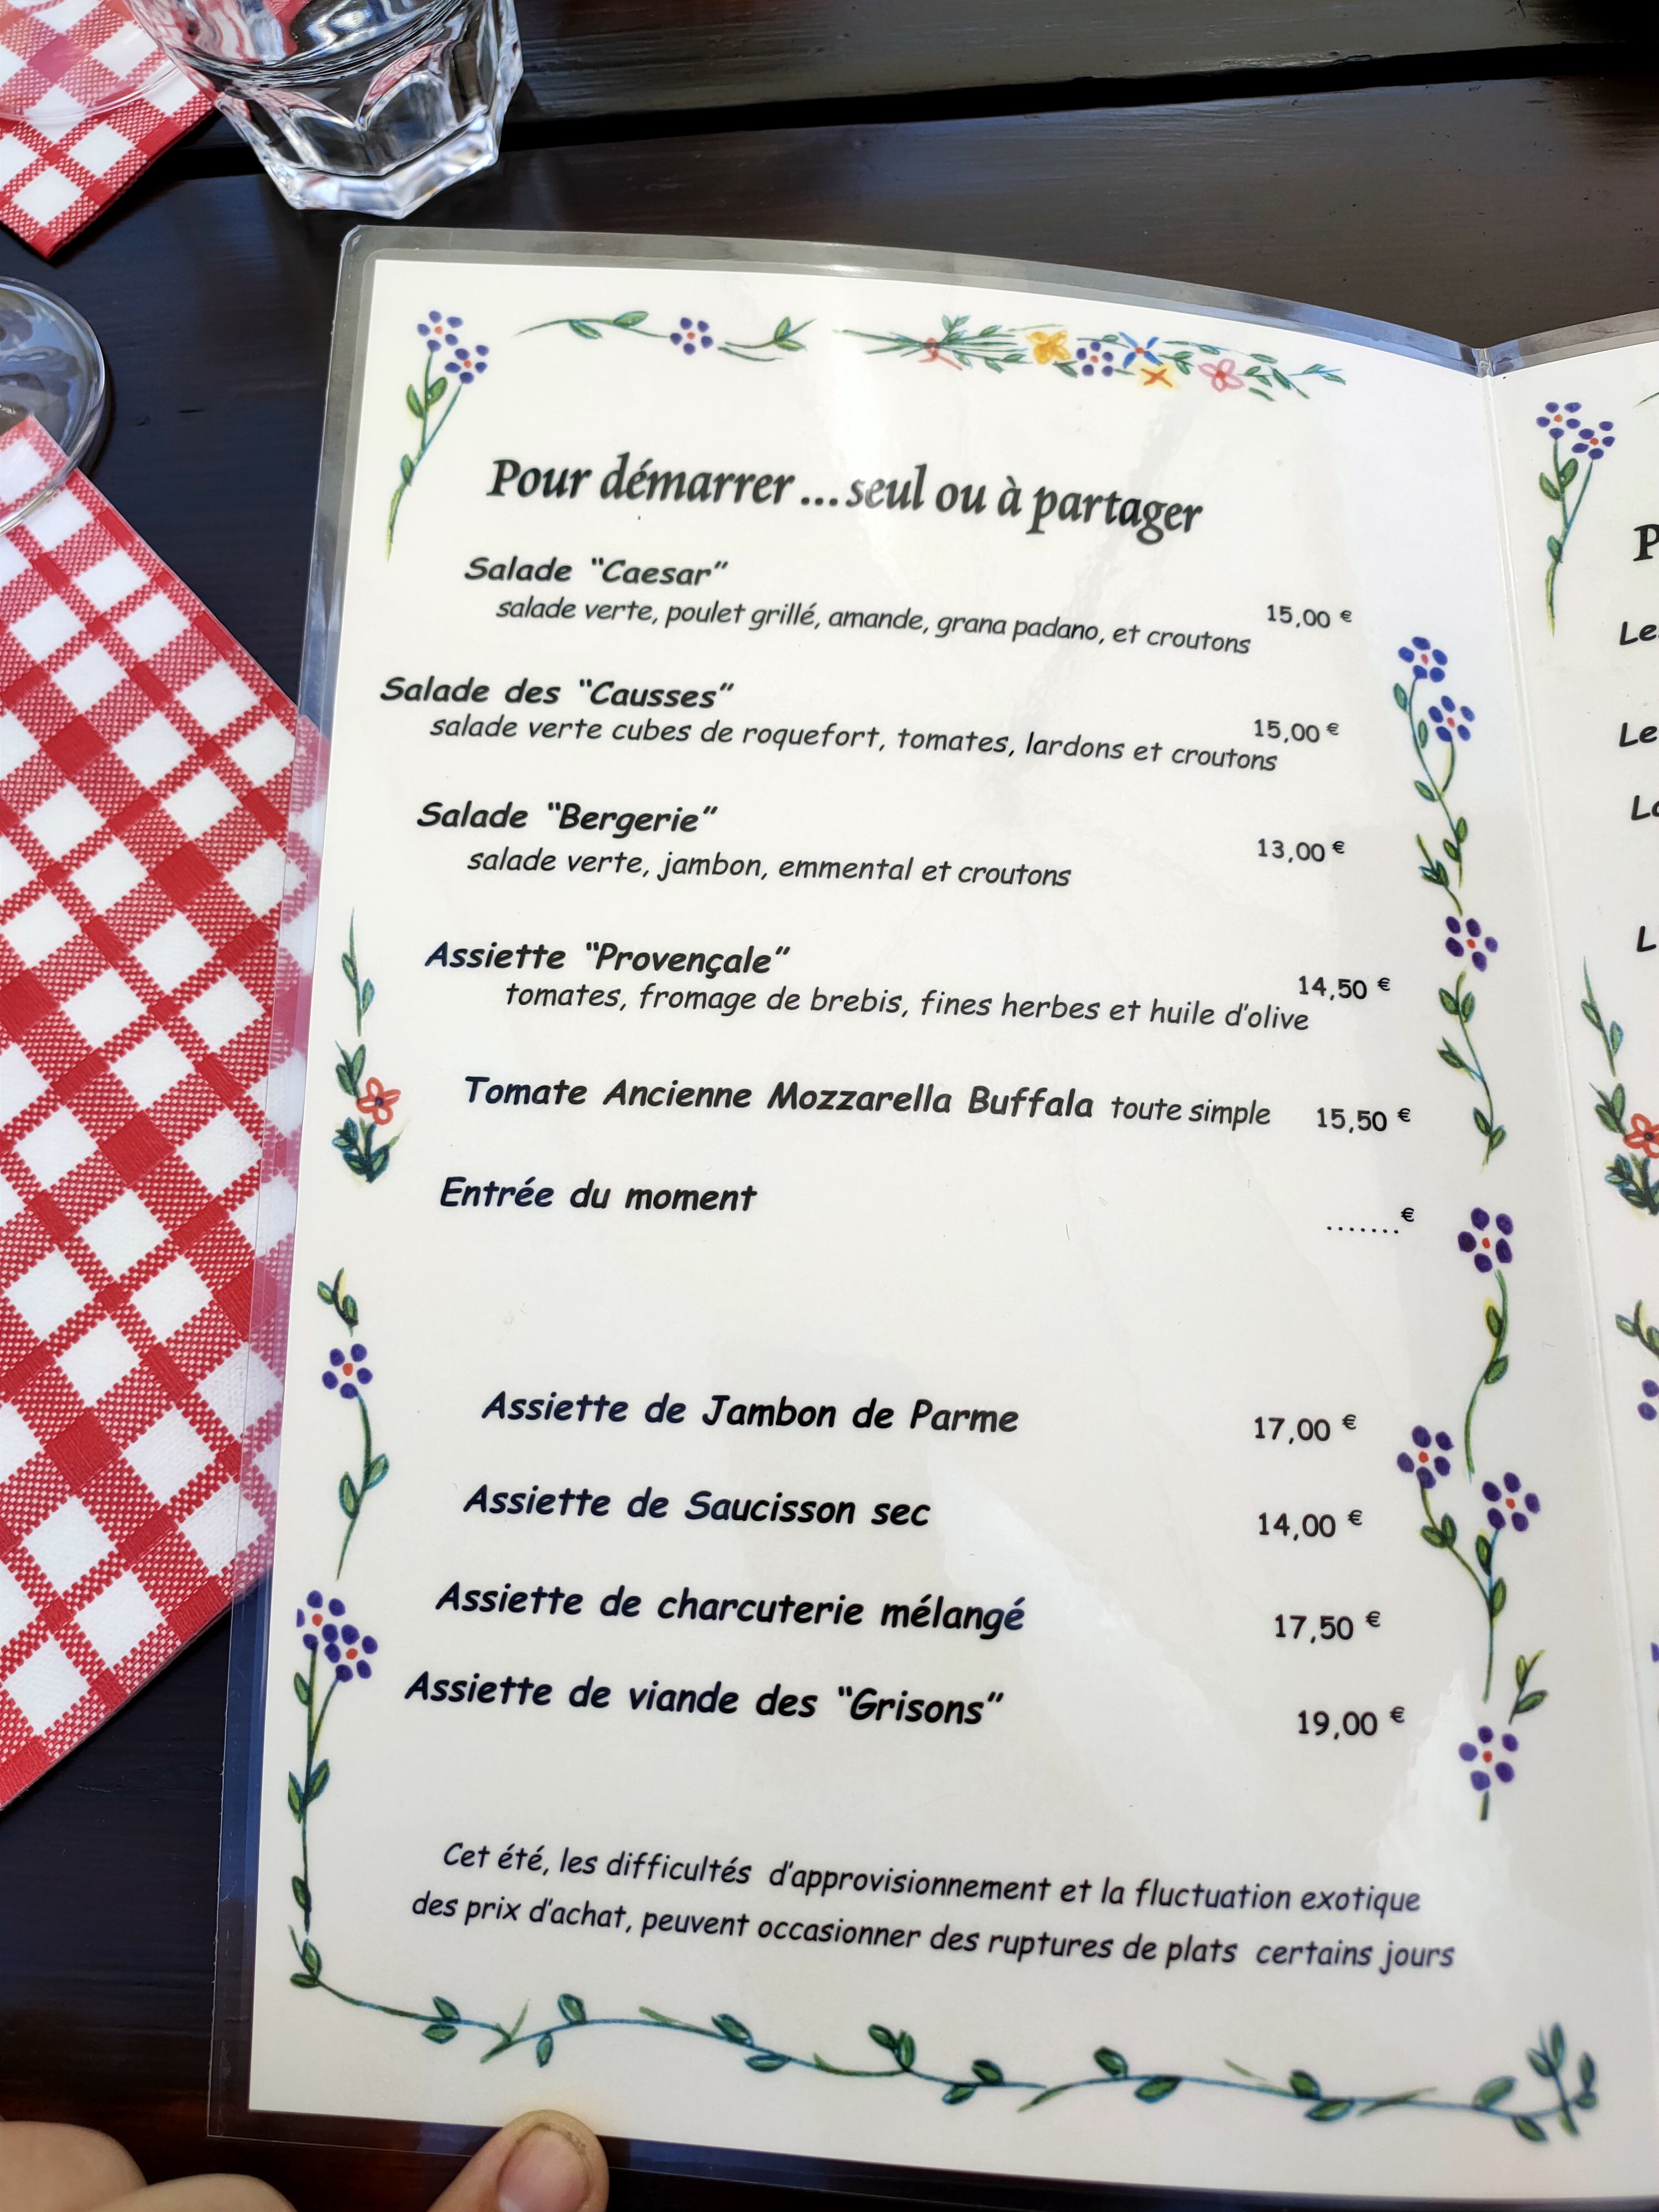 Pour démarrer ... seul ou à partager
Salade "Caesar"
salade verte, poulet grillé, amande, grana padano, et croutons 15,00 €
Salade des "Causses"
salade verte cubes de roquefort, tomates, lardons et croutons 15,00 €
Salade "Bergerie"
salade verte, jambon, emmental et croutons 13,00 €
Assiette "Provençale"
tomates, fromage de brebis, fines herbes et huile d'olive 14,50 €
Tomate Ancienne Mozzarella Buffala toute simple 15,50 €
Entrée du moment .......€
Assiette de Jambon de Parme 17,00 €
Assiette de Saucisson sec 14,00 €
Assiette de charcuterie mélangé 17,50 €
Assiette de viande des "Grisons" 19,00 €
Cet été, les difficultés d'approvisionnement et la fluctuation exotique
des prix d'achat, peuvent occasionner des ruptures de plats certains jours
P
Le
Le
L